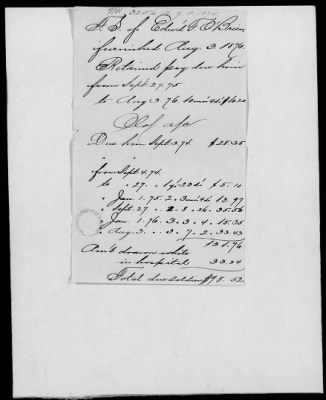 of Edwd F. O'Brien
furnished Aug. 3. 1876.
Retained pay due him
from Sept. 27. 75
to Aug 3 76 10 mos 4ds $16.20
Due him Sept. 3.74. $28.35
from Sept 4.74.
to . 29. . 23ds $5.10
" Jan. 1. 75. 2. 3 mos 4ds 13.97
" Sept. 27 . 2. 8 . 26. 35.56
" Jan. 1. 76. 3. 3. 4. 15.35
" Aug. 3. . 3. 7. 2. 33.43
131.76
Amt drawn while
in hospital 33.24
Total due soldier $98.52